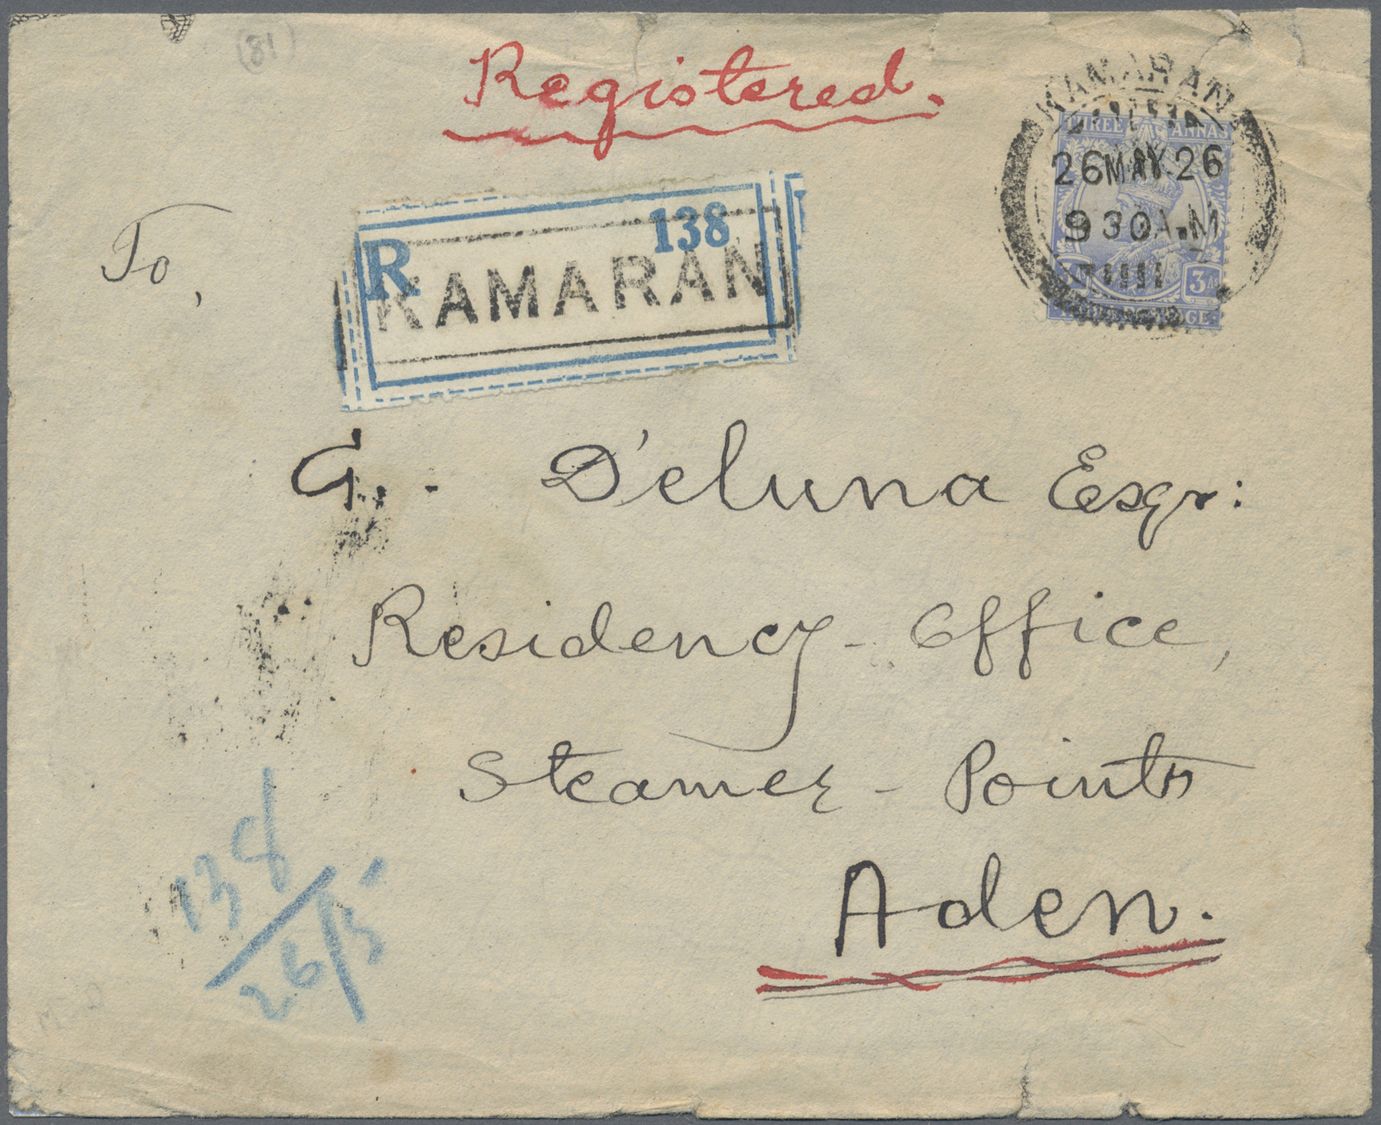 (81)
Registered.
KAMARAN
THREE ANNAS
26 MAY. 26
9 30 A.M
3A
To,
R 138
KAMARAN
G. D'eluna Esqr:
Residency - Office,
Steamer - Point
Aden.
138
26/5